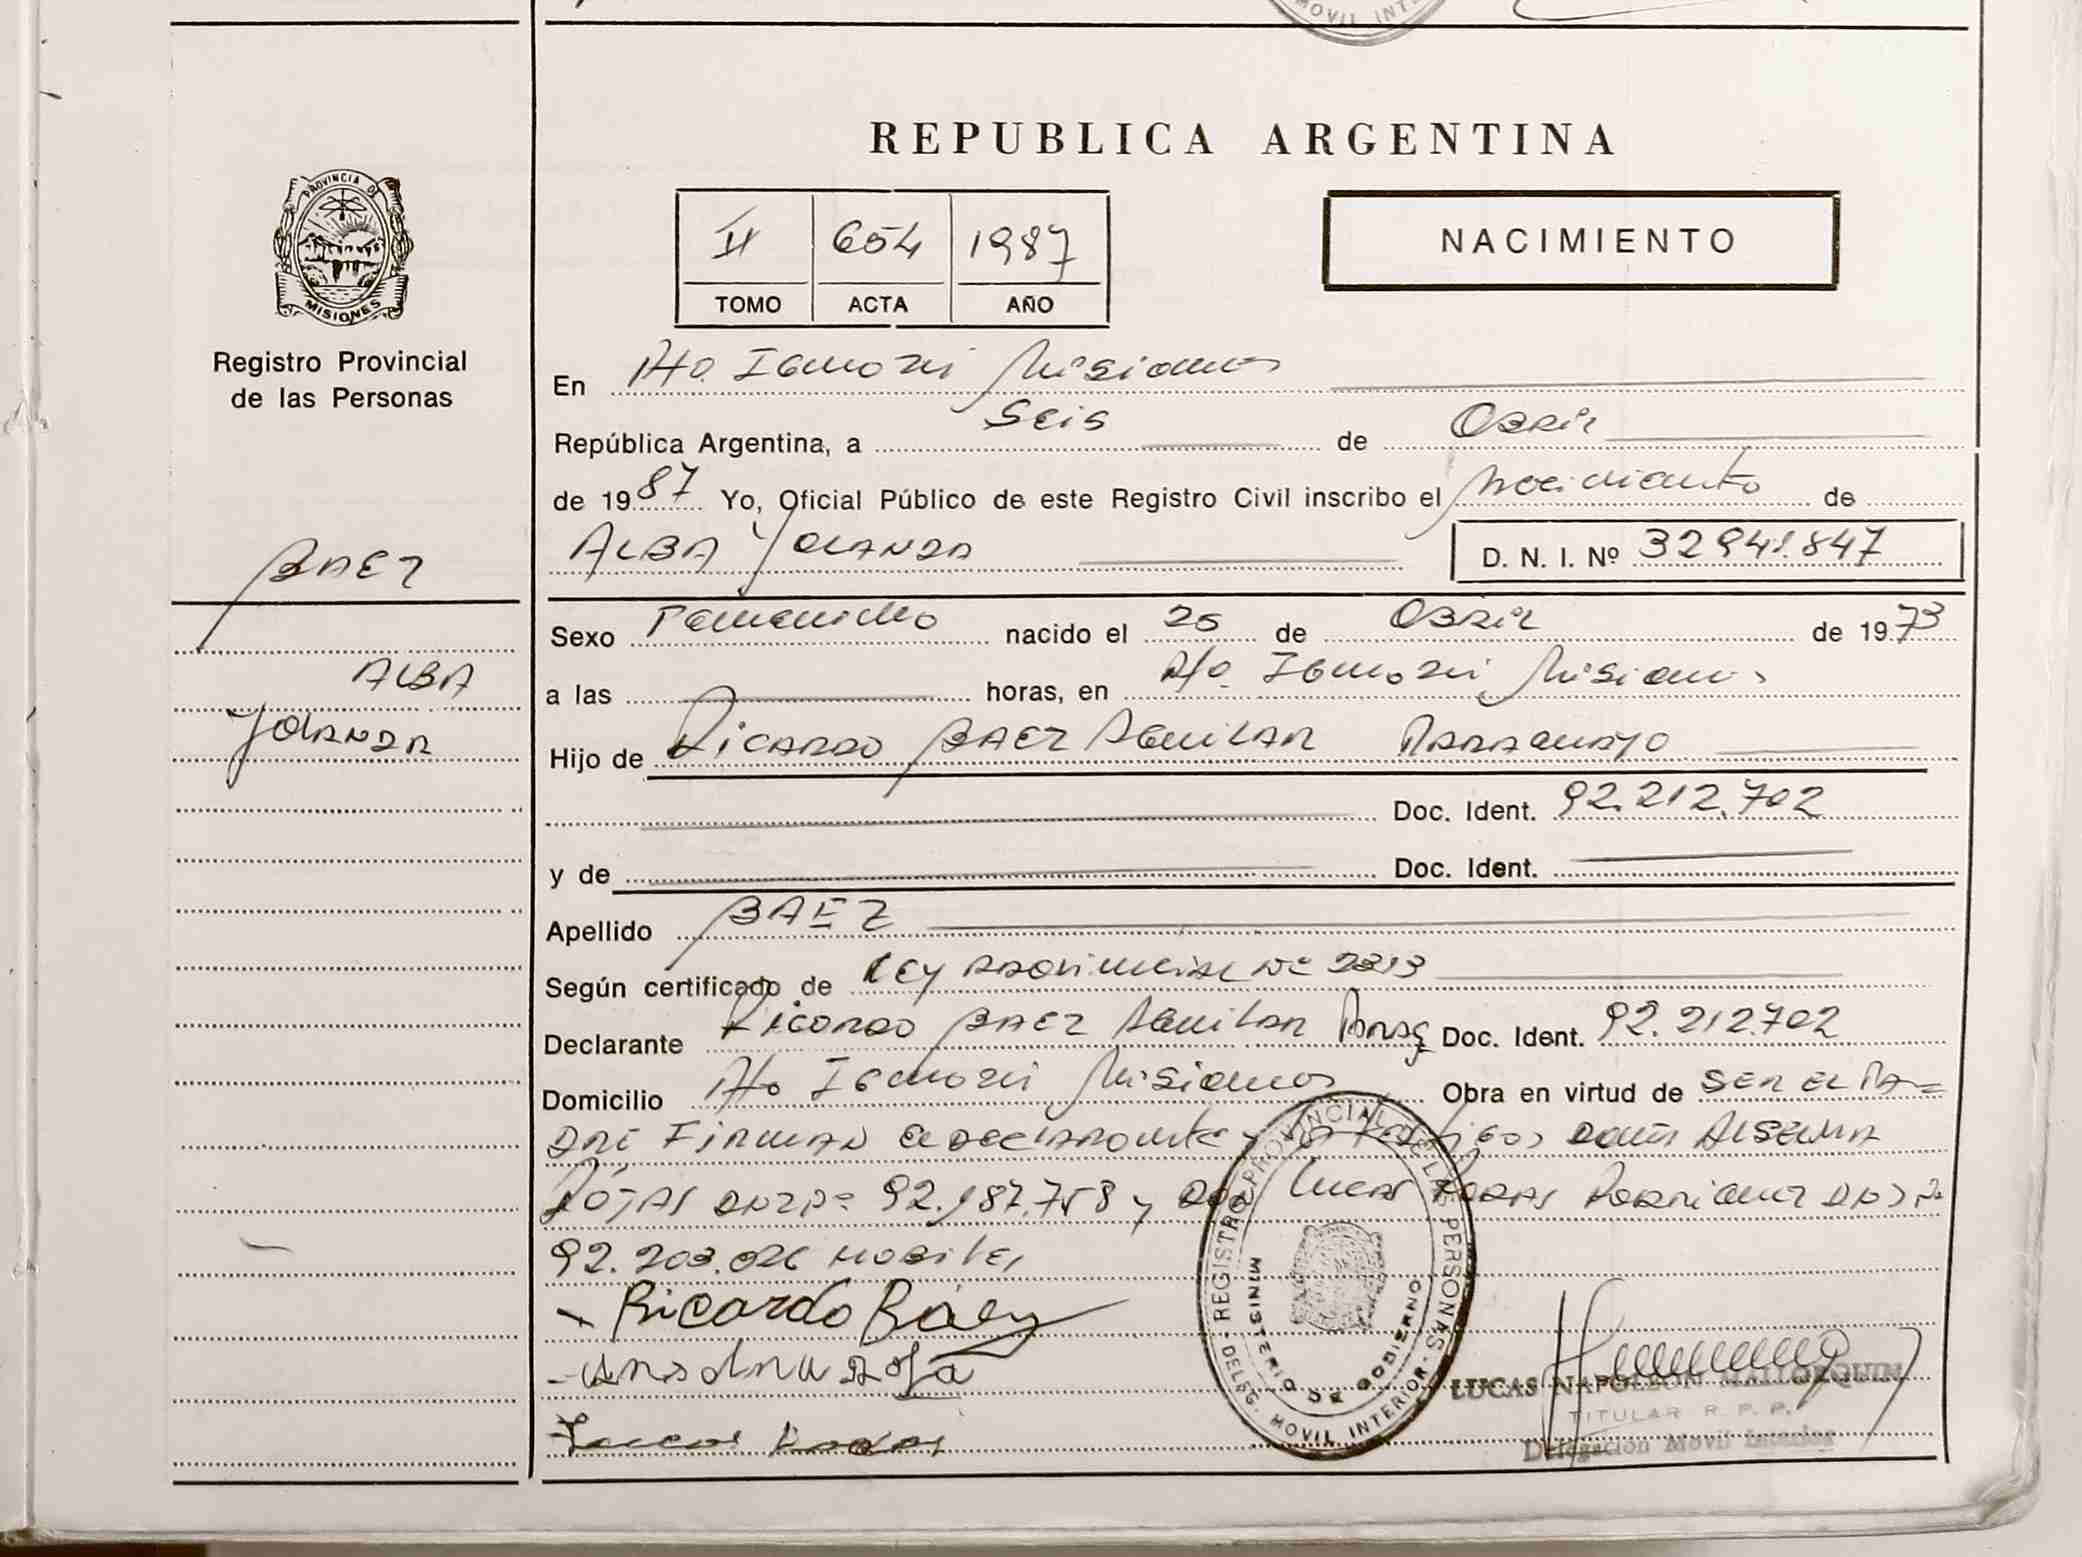 MOVIL INTE
REPUBLICA ARGENTINA
PROVINCIA DE
MISIONES
Registro Provincial
de las Personas
II 654 1987
TOMO ACTA AÑO
NACIMIENTO
En Pto. Iguazú Misiones
República Argentina, a Seis de Abril
de 1987 Yo, Oficial Público de este Registro Civil inscribo el Nacimiento de
ALBA YOLANDA D. N. I. Nº 32941.847
BAEZ
ALBA
YOLANDA
Sexo Femenino nacido el 25 de Abril de 1973
a las horas, en Pto. Iguazú Misiones
Hijo de RICARDO BAEZ AGUILAR PARAGUAYO
Doc. Ident. 92.212.702
y de Doc. Ident.
Apellido BAEZ
Según certificado de Ley PROVINCIAL Nº 2313
Declarante RICARDO BAEZ AGUILAR Parag Doc. Ident. 92.212.702
Domicilio Pto Iguazú Misiones Obra en virtud de SER EL PA=
DRE FIRMAN el declarante y testigos doña
ROJAS 92.187.758 y Don Lucas
92.203.026
Ricardo Báez
REGISTRO PROVINCIAL DE LAS PERSONAS
MINISTERIO DE GOBIERNO
DELEG. MOVIL INTERIOR
LUCAS NAPOLEON MALLORQUIN
TITULAR R. P. P.
Delegación Movil Interior